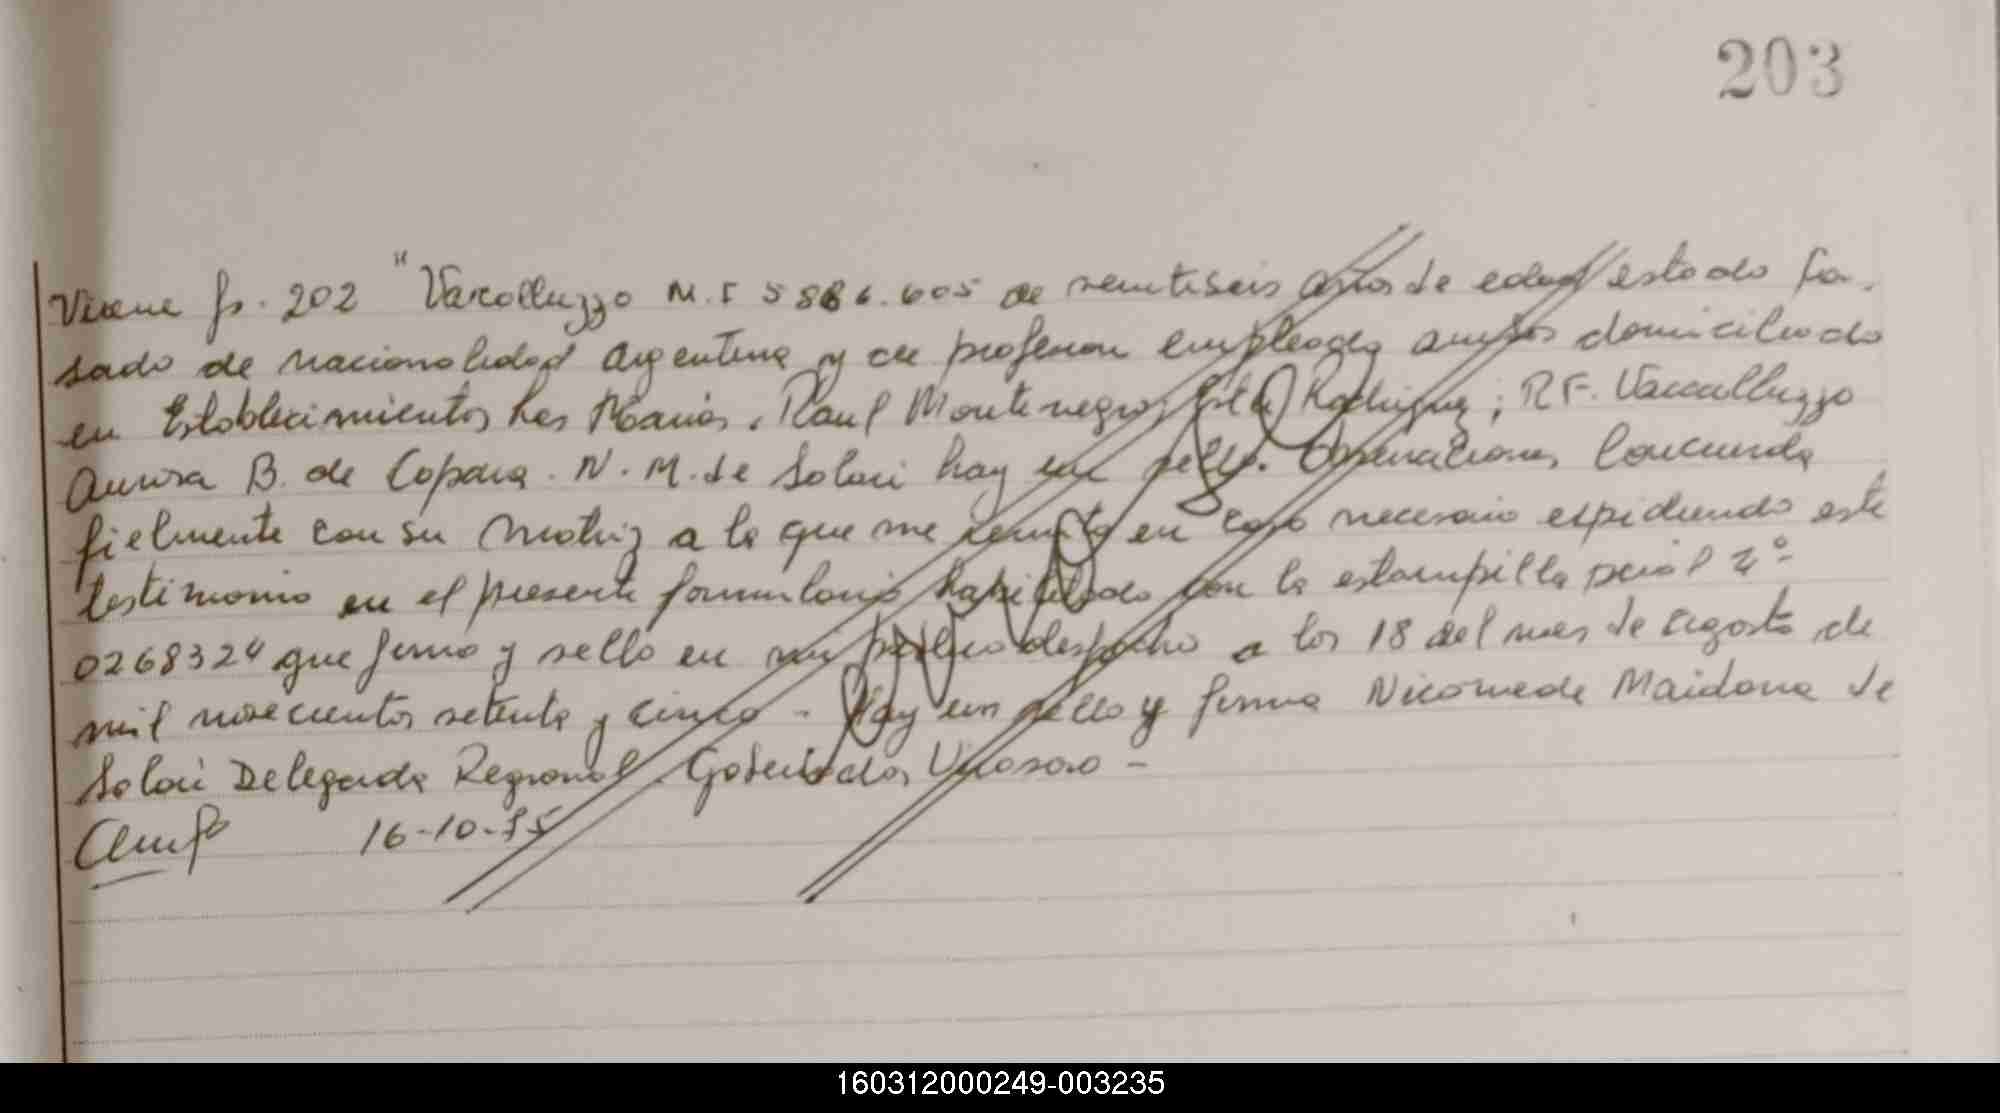 203
Viene fs. 202 "Varcolluzzo M.I 5886.605 de veintiseis años de edad estado ca-
sado de nacionalidad argentina y de profesion empleado ambos domiciliado
en Establecimientos Las Marias. Raul Montenegro; Rodriguez; R F. Varcalluzzo
Aurora B. de Copara. N. M. de Solari hay un sello. Observaciones Concuerda
fielmente con su matriz a la que me remito en caso necesario espidiendo este
testimonio en el presente formulario habilitado con la estampilla pcial Nº
0268324 que firmo y sello en mi publico despacho a los 18 del mes de agosto de
mil novecientos setenta y cinco - Hay un sello y firma Nicomede Maidana de
Solari Delegada Regional. Gobernador Virasoro -
16-10-75
160312000249-003235